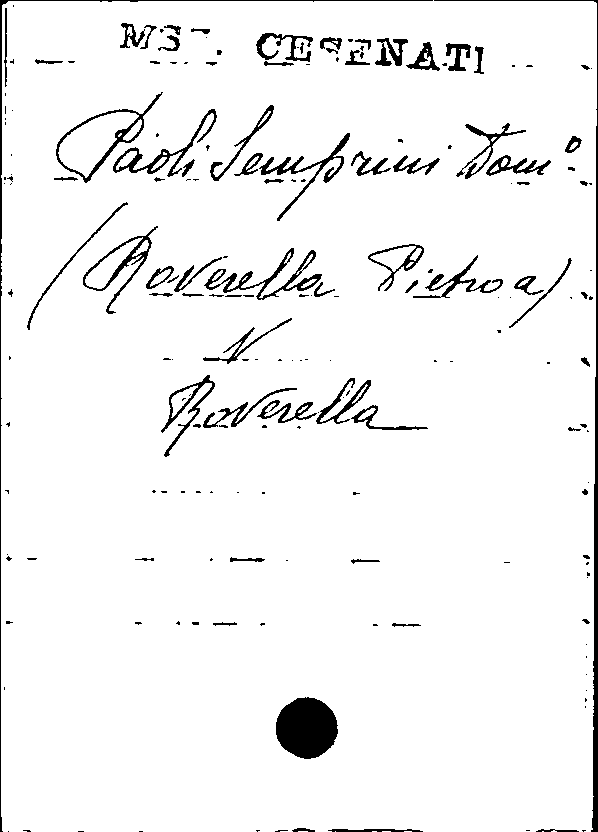 MSS. CESENATI
Paoli Semprini Dom.º
(Roverella Pietro a)
V
Roverella